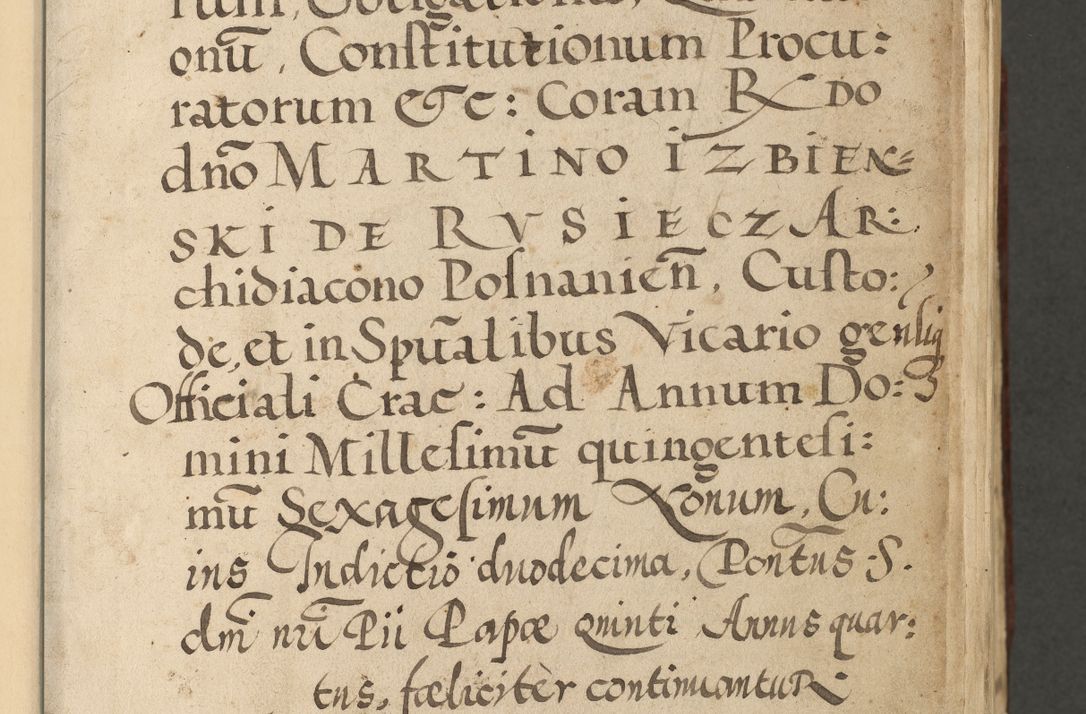 rum, Obligationum,
onū, Constitutionum Procu:
ratorum &c: Coram R DO
dño MARTINO IZBIEN=
SKI DE RVSIECZ AR:
chidiacono Posnanien̄, Custo:
de, et in Spūalibus Vicario gen̄liq
Officiali Crac: Ad Annum Do:
mini Millesimū quingentesi:
mū Sexagesimum Nonum, Cu:
ius Indictio duodecima, Pontūs S.
dn̄i nr̄i Pii Papæ Quinti Annus quar:
tus, fæliciter continuantur